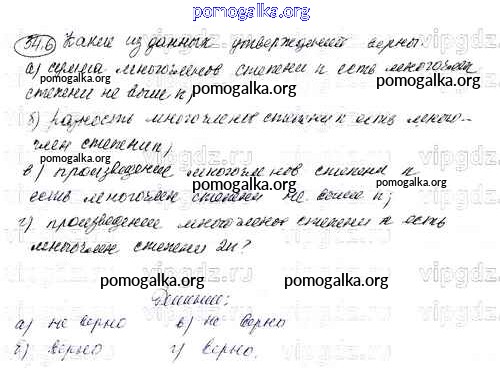 pomogalka.org
54.6 Какие из данных утверждений верны:
а) сумма многочленов степени n есть многочлен
степени не выше n;
б) разность многочленов степени n есть много-
член степени n;
в) произведение многочленов степени n
есть многочлен степени не выше n;
г) произведение многочленов степени n есть
многочлен степени 2n?
Решение:
а) не верно в) не верно
б) верно г) верно.
pomogalka.org
pomogalka.org
pomogalka.org
pomogalka.org
pomogalka.org
pomogalka.org
pomogalka.org
pomogalka.org
vipgdz.ru
vipgdz.ru
vipgdz.ru
vipgdz.ru
vipgdz.ru